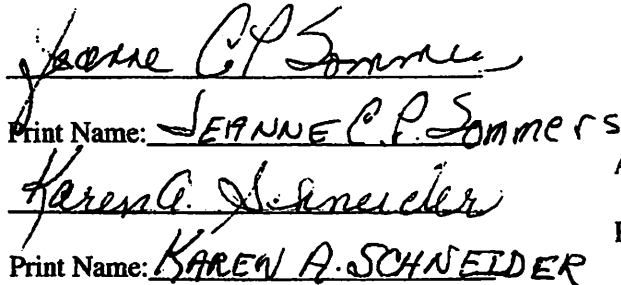 Jeanne C P Sommers
Print Name: JEANNE C. P. Sommers
Karen A. Schneider
Print Name: KAREN A. SCHNEIDER